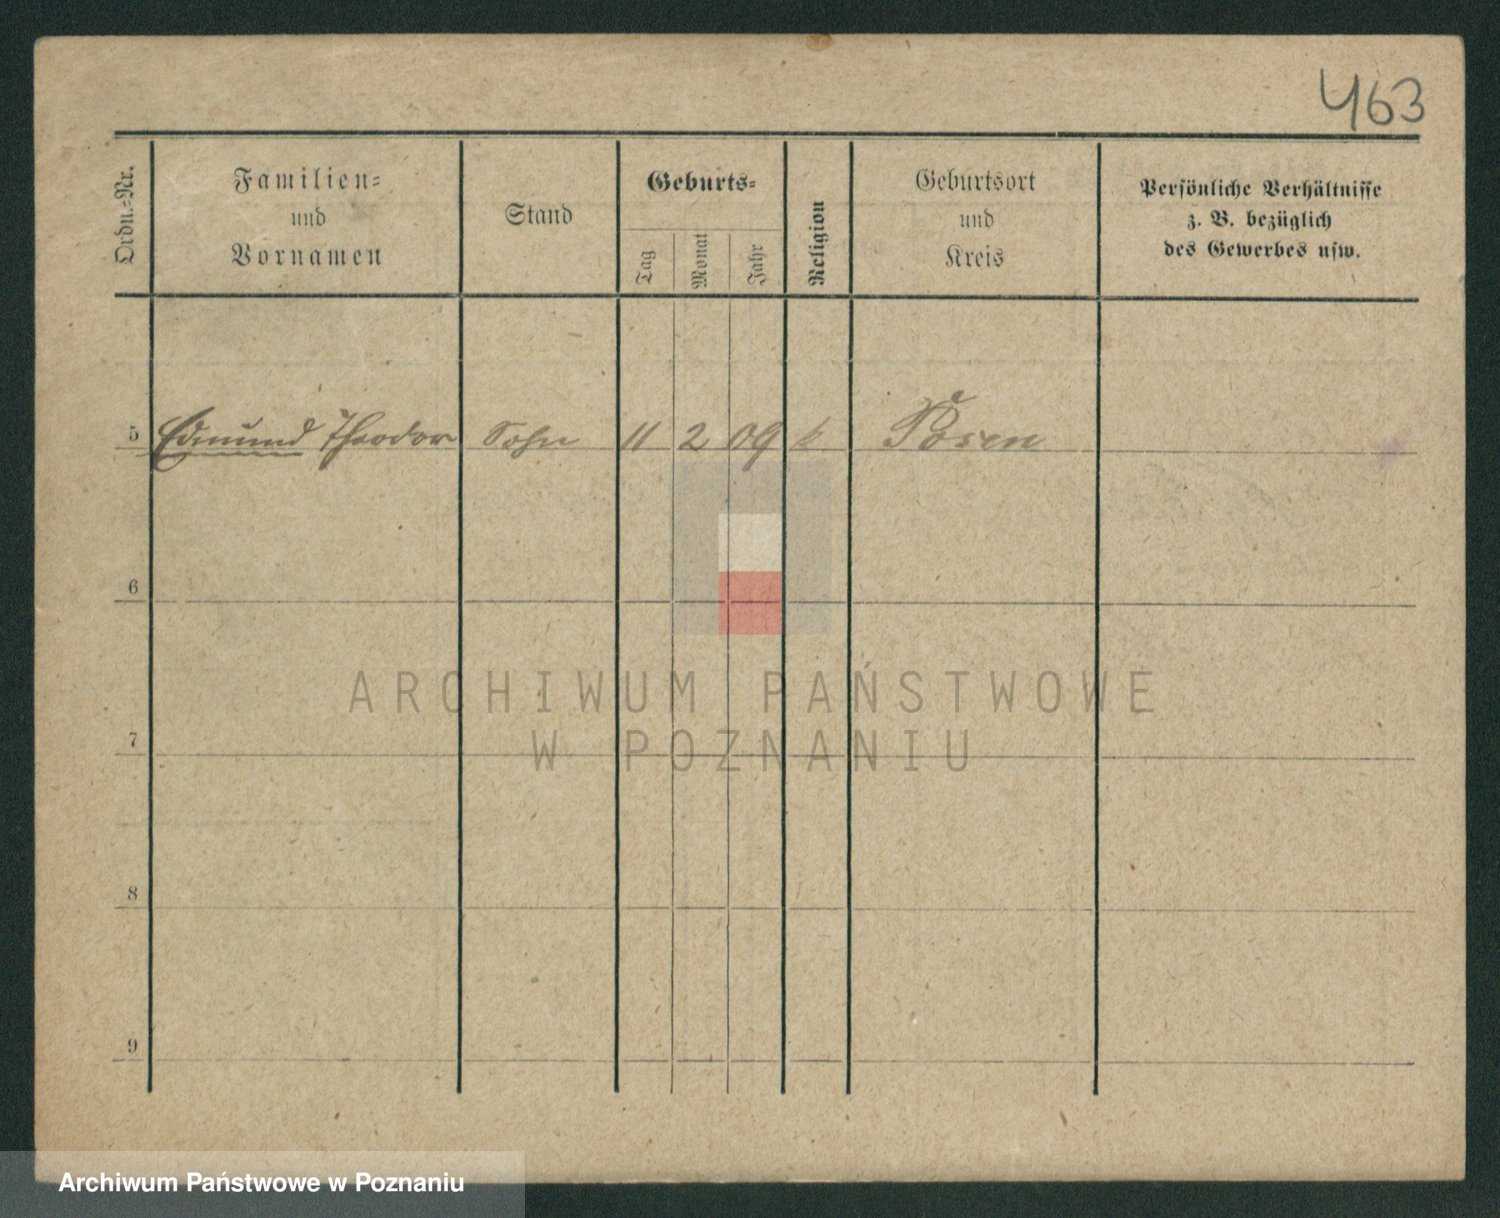 463
Ordn.-Nr.
Familien-
und
Vornamen
Stand
Geburts-
Tag
Monat
Jahr
Religion
Geburtsort
und
Kreis
Persönliche Verhältnisse
z. B. bezüglich
des Gewerbes usw.
5 Edmund Theodor Sohn 11 2 09 k Posen
6
ARCHIWUM PAŃSTWOWE
W POZNANIU
7
8
9
Archiwum Państwowe w Poznaniu